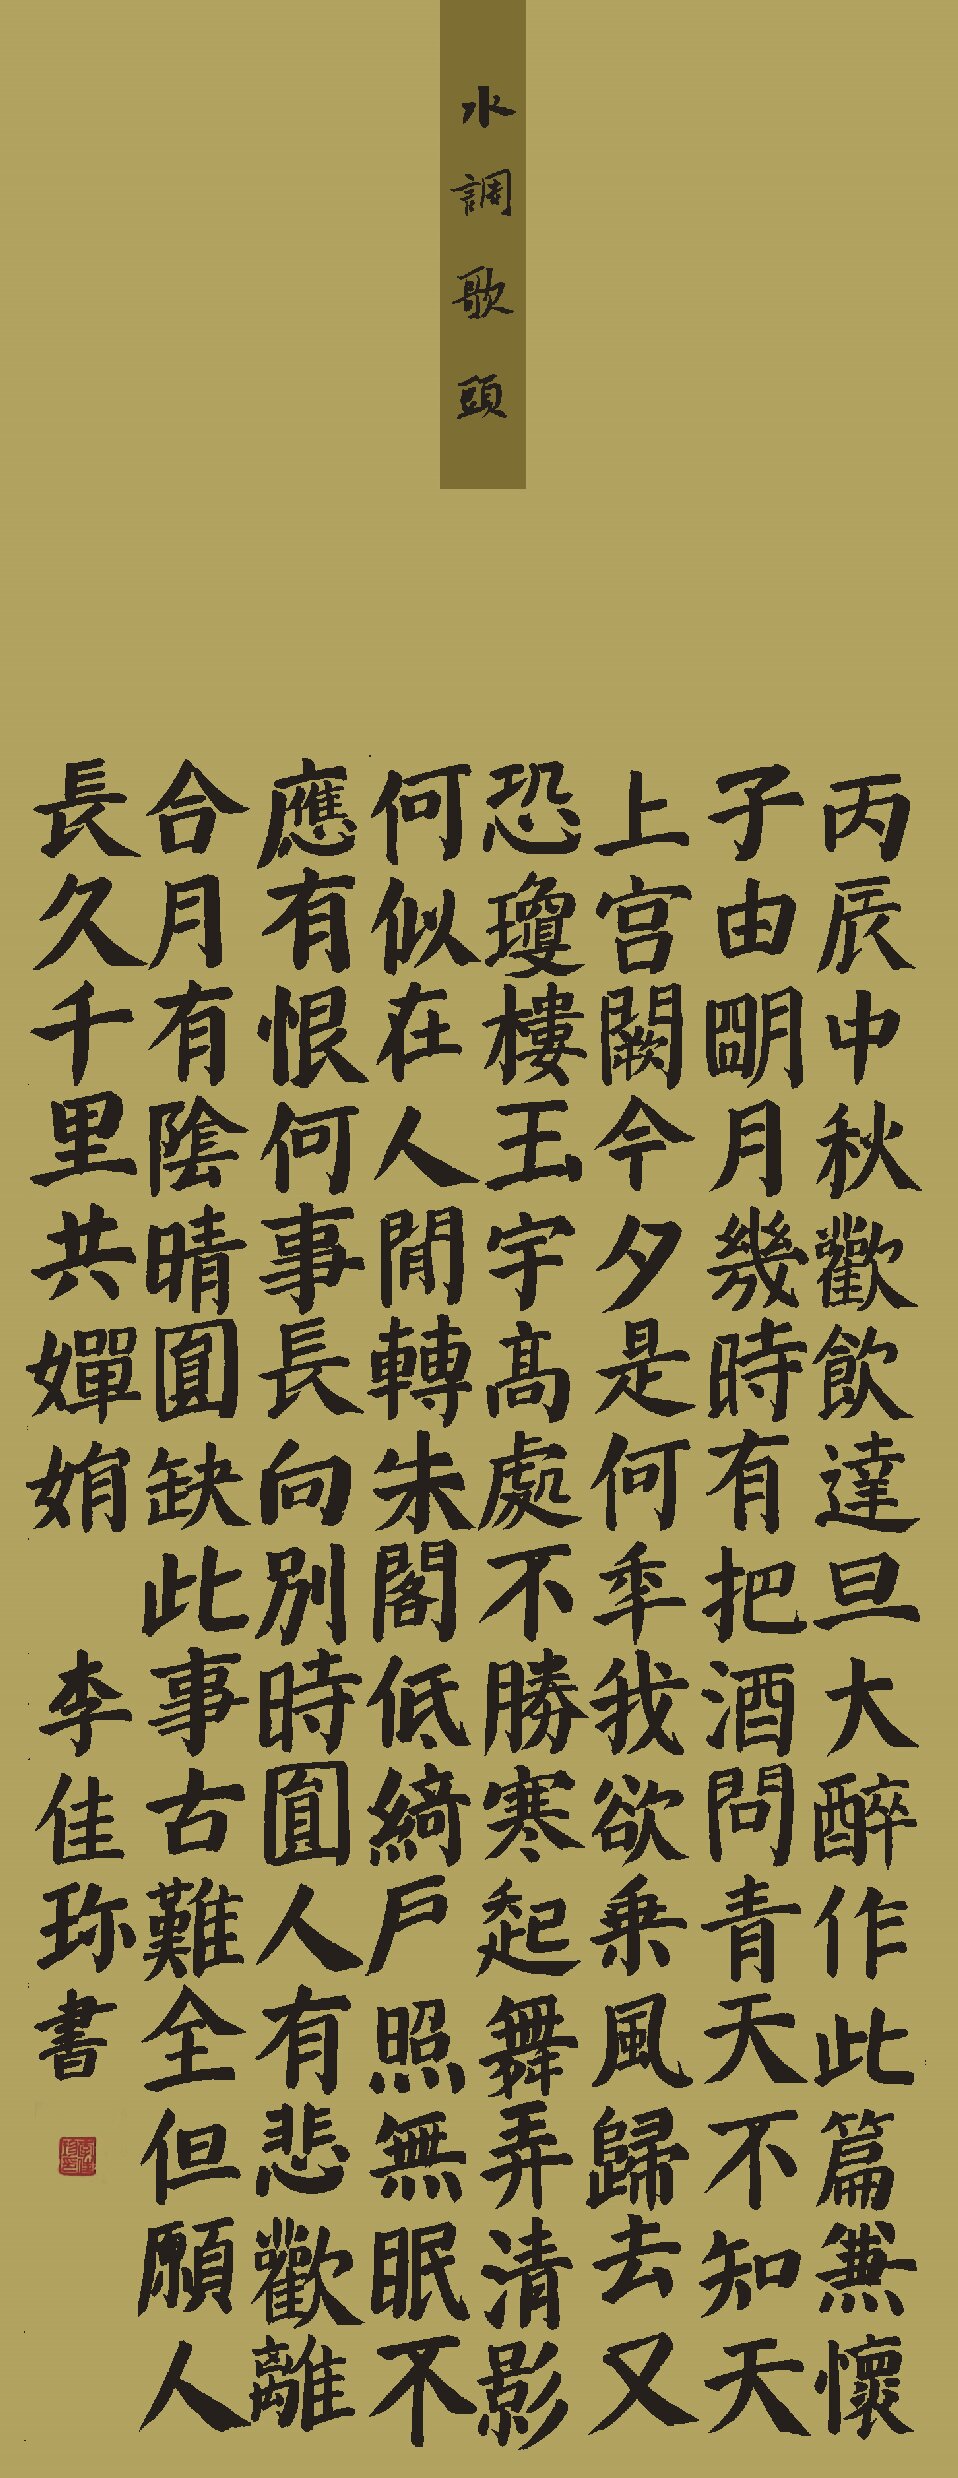 水調歌頭
丙辰中秋歡飲達旦大醉作此篇兼懷
子由明月幾時有把酒問青天不知天
上宮闕今夕是何年我欲乘風歸去又
恐瓊樓玉宇高處不勝寒起舞弄清影
何似在人閒轉朱閣低綺戶照無眠不
應有恨何事長向別時圓人有悲歡離
合月有陰晴圓缺此事古難全但願人
長久千里共嬋娟
李佳珎書